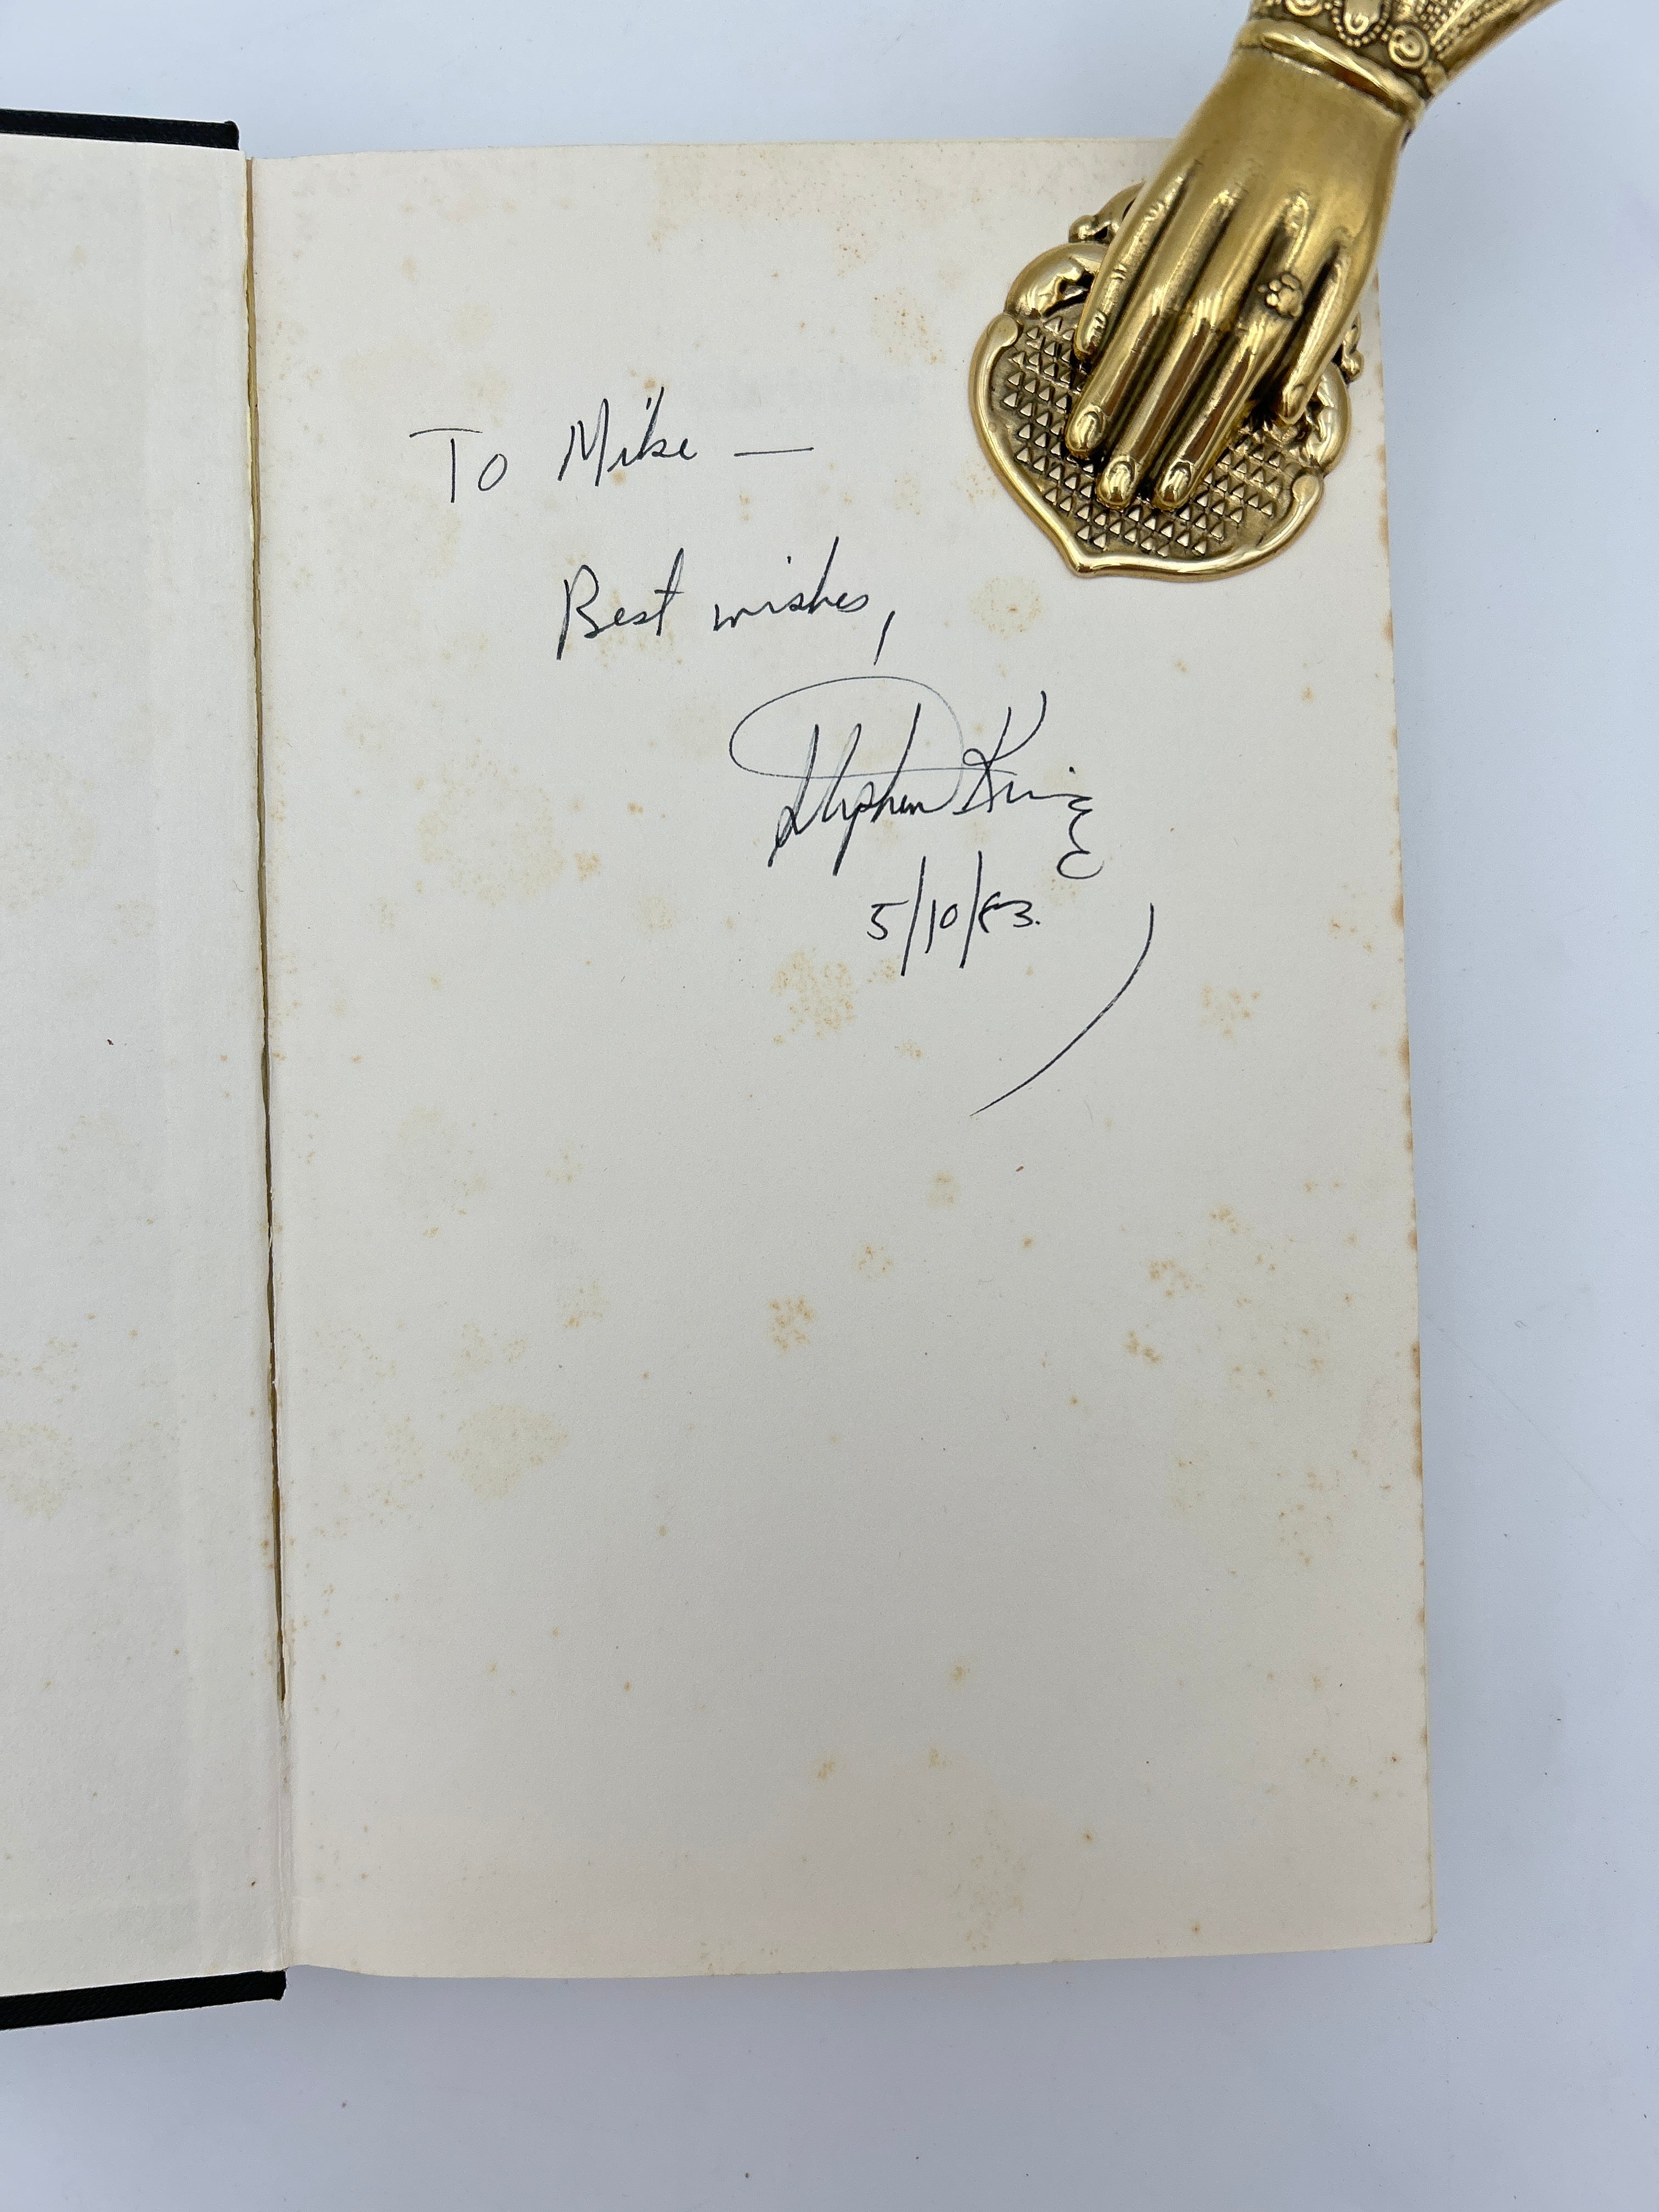 To Mike —
Best wishes,
Stephen King
5/10/83.